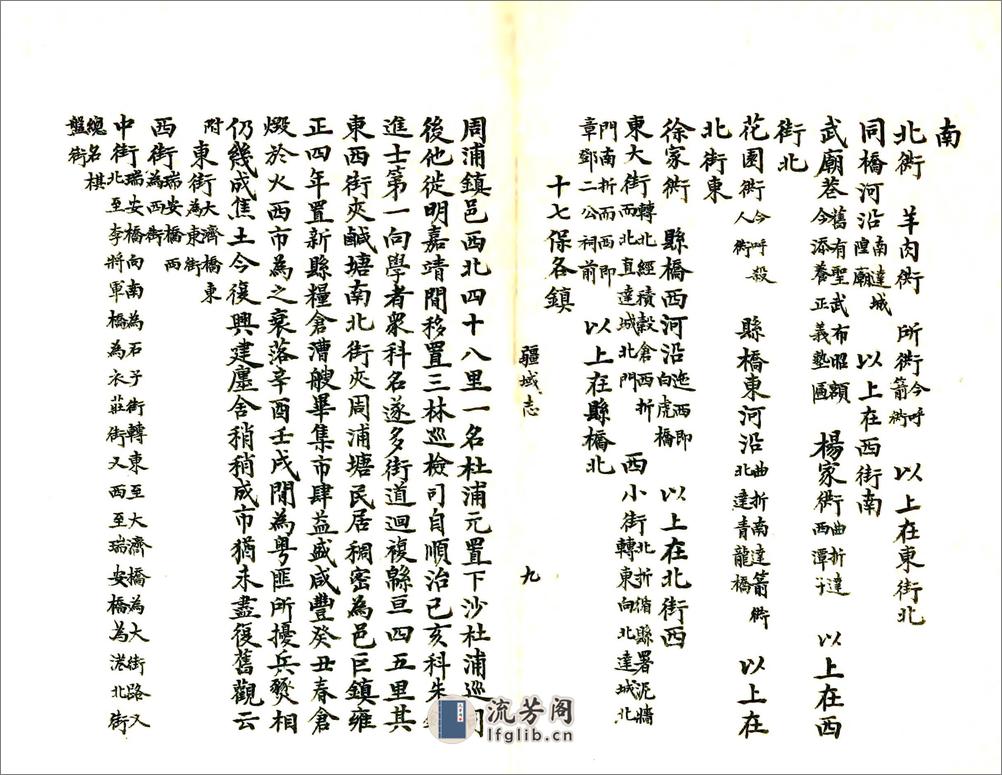 南
北衖　羊肉衖　所衖今呼箭衖　以上在東街北
同橋河沿南達城隍廟　以上在西街南
武廟巷舊有聖武布昭額今添養正義塾區　楊家衖曲折達西潭子　以上在西
街北
花園衖今呼殺人衖　縣橋東河沿曲折南達箭衖北達青龍橋　以上在
北街東
徐家衖　縣橋西河沿迤西即白虎橋　以上在北街西
東大街轉北經積穀倉西折而北直達城北門　西小街北折循縣署泥牆轉東向北達城北
門南折而西即章鄧二公祠前　以上在縣橋北
十七保各鎮
疆域志　九
周浦鎮邑西北四十八里一名杜浦元置下沙杜浦巡司
後他徙明嘉靖間移置三林巡檢司自順治己亥科朱
進士第一向學者衆科名遂多街道迴複緜亘四五里其
東西街夾鹹塘南北街夾周浦塘民居稠密為邑巨鎮雍
正四年置新縣糧倉漕艘畢集市肆益盛咸豐癸丑春倉
燬於火西市為之衰落辛酉壬戌間為粵匪所擾兵燹相
仍幾成焦土今復興建廛舍稍稍成市猶未盡復舊觀云
附　東街大濟橋東為東街
西街瑞安橋西為西街
中街瑞安橋向南為石子街轉東至大濟橋為大街路又北至李將軍橋為衣莊街又西至瑞安橋為港北街
總名棋盤街
流芳阁
lfglib.cn